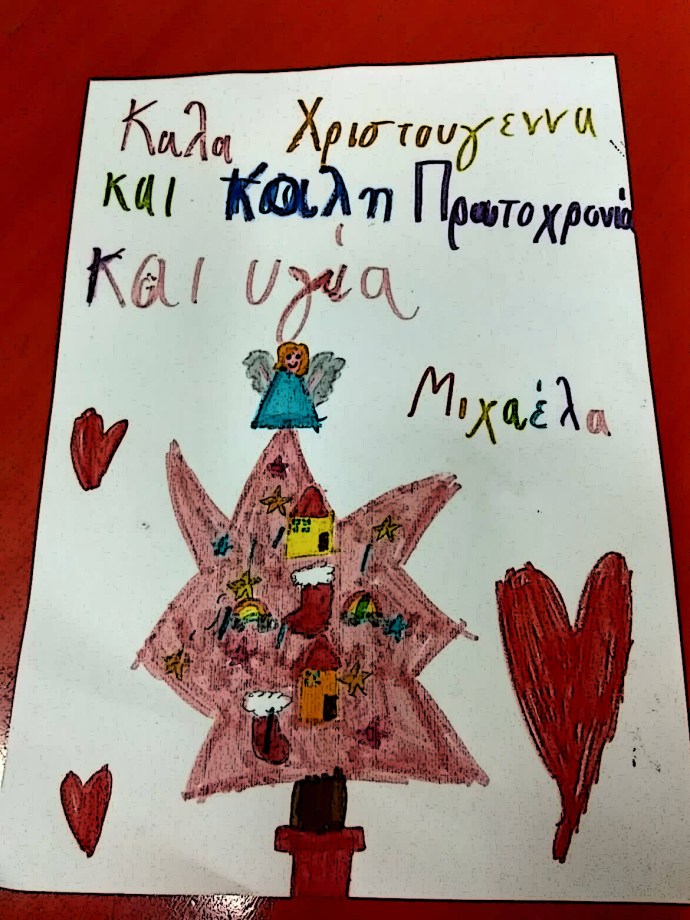 Καλα Χριστουγεννα
και Καλη Πρωτοχρονιά
και υγεία
Μιχαέλα